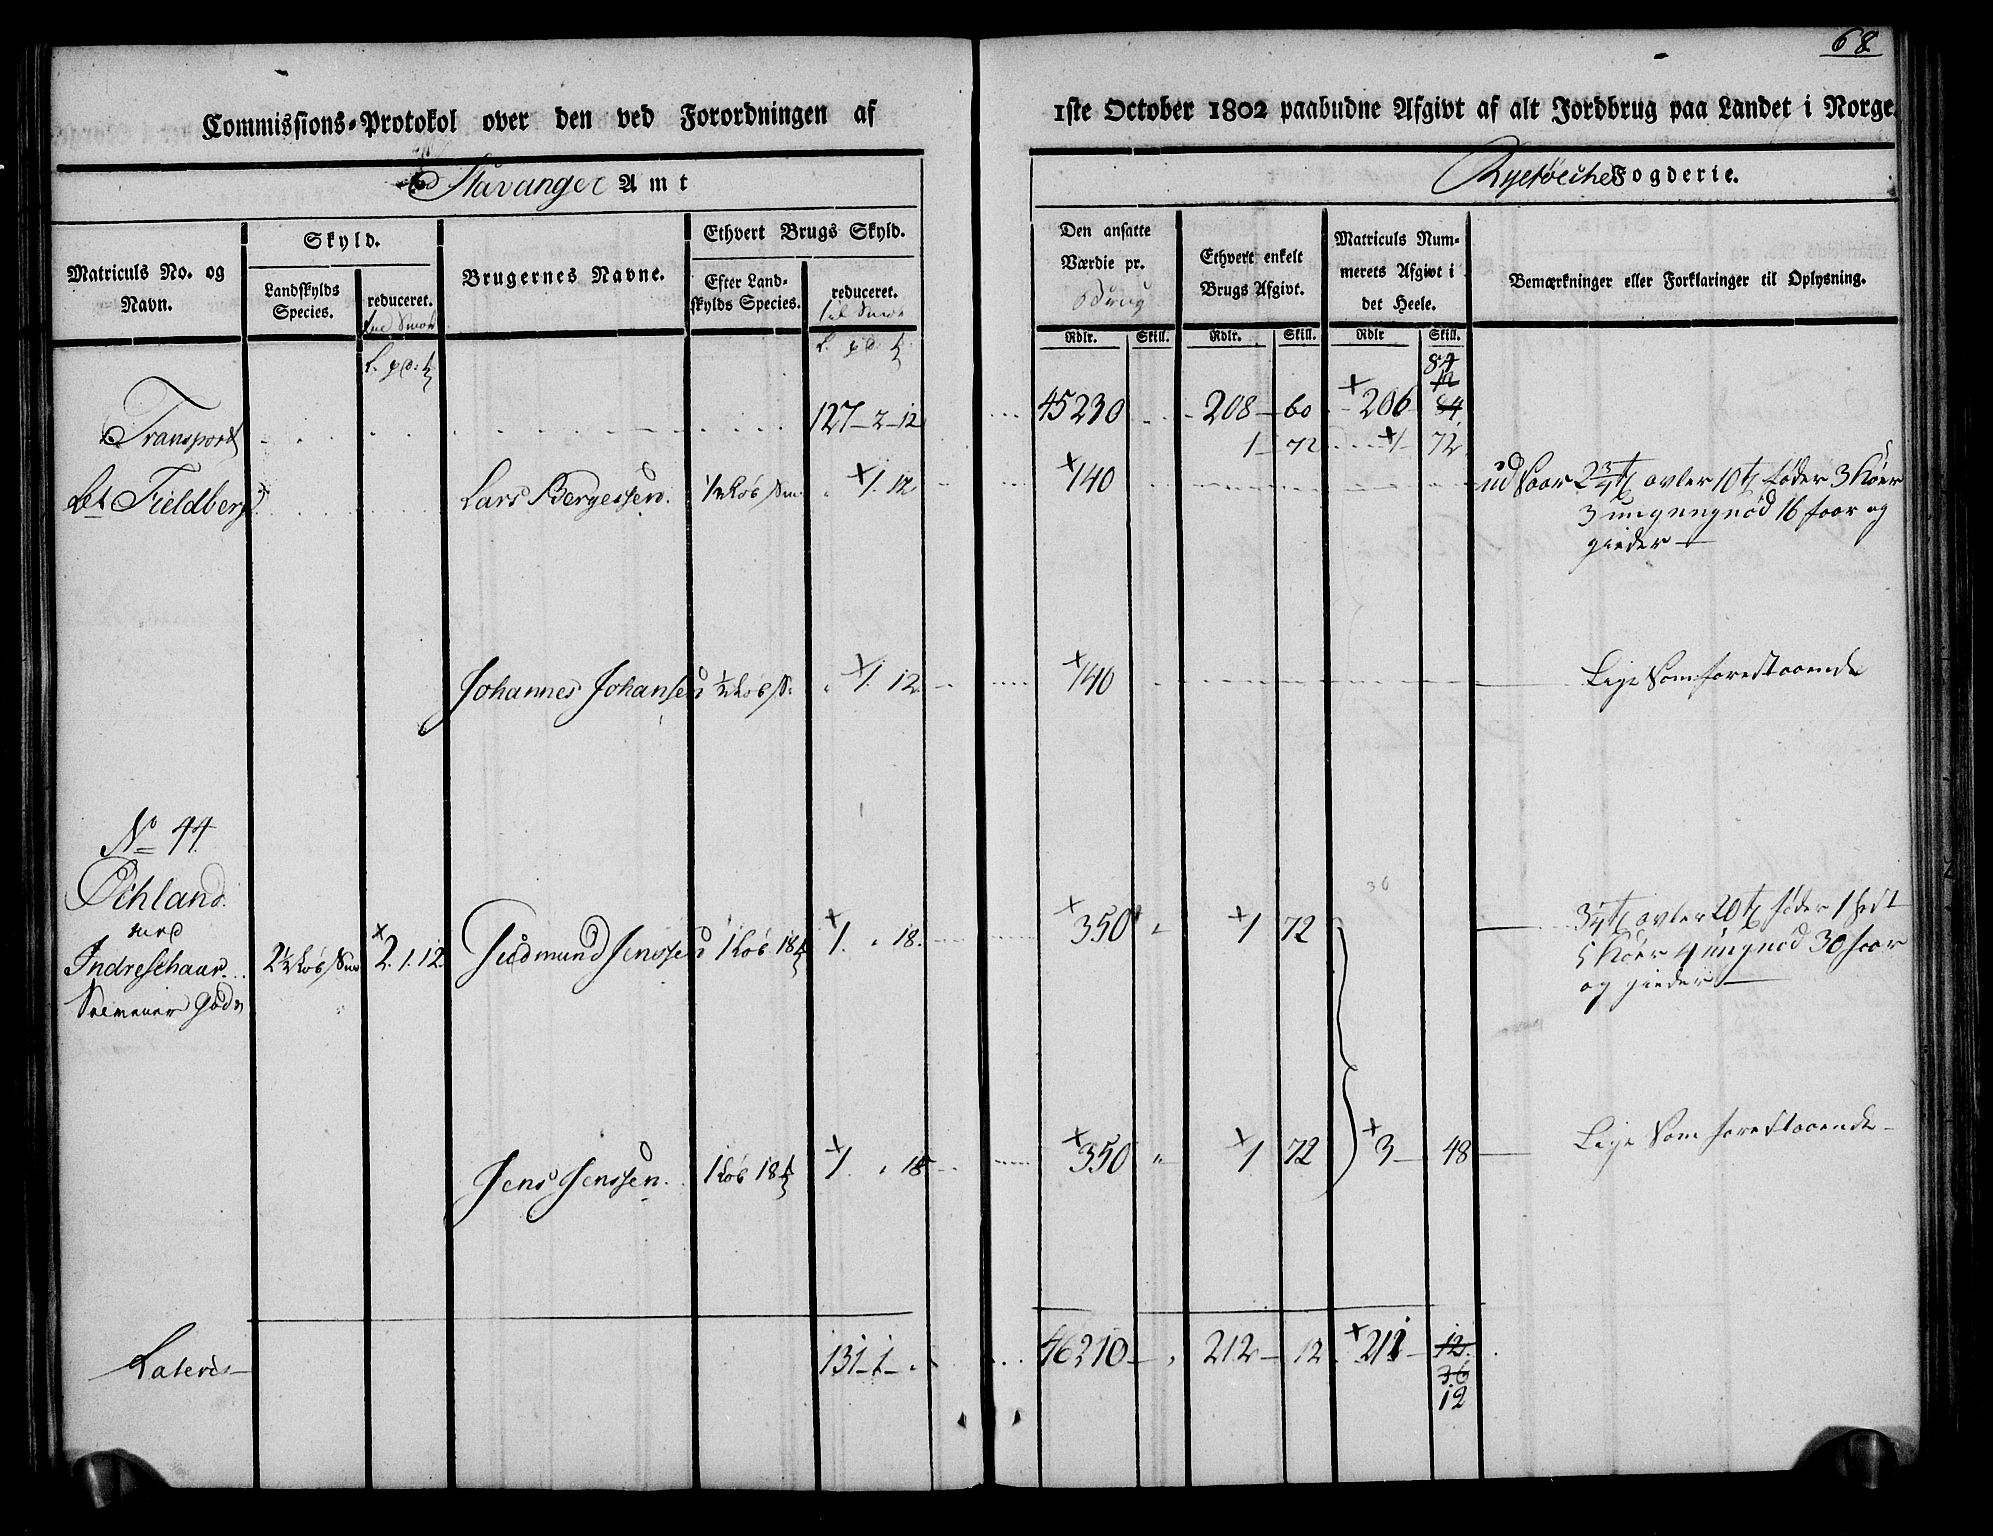 68
Commissions-Protokol over den ved Forordningen af 1ste October 1802 paabudne Afgivt af alt Jordbrug paa Landet i Norge.
Stavanger Amt
Ryefölche Fogderie.
Matriculs No. og Navn.
Skyld.
Landskylds Species.
reduceret.
Brugernes Navne.
Ethvert Brugs Skyld.
Efter Land-
skylds Species.
reduceret.
Den ansatte
Værdie pr.
Brug
Ethvert enkelt
Brugs Afgivt.
Matriculs Num-
merets Afgivt i
det Heele.
Bemærkninger eller Forklaringer til Oplysning.
Rdlr. Skill. Rdlr. Skill. Rdlr Skill.
84
12
Transport 127-2-12 45230 208-60 206 84
1-72 1 72
Lars Bergessen. 1/2 Løb Sm. 1. 12 140
Bet. Fieldberg
udsaar 2 3/4 avler 10 føder 3 Kiøer
3 ungnød 16 faar og
gieder
Johannes Johansen 1/2 Løb 1. 12 140 Lige Som forestaaende
No 44.
Öchland
med
Indreschaar
Gods
2 1/2 Løb Sm 2. 1. 12.
Gudmund Jenssen 1 Løb 18 1. 18. 350 1 72
36
3 1/4 avler 20 føder 1 hest
5 Kiøer 4 ungnød 30 faar
og gieder
Jens Jenssen. 1 Løb 18 1. 18 350 1 72 3 48 Lige Som forestaaende
Lateris 131-1- 46210 212-12 211 12
36
12